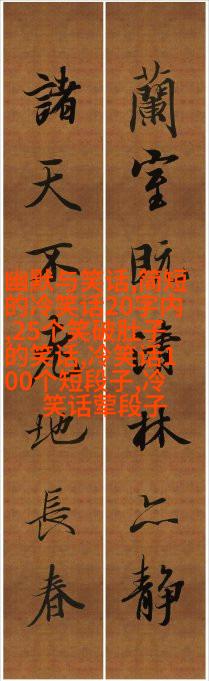 蘭室既林亦静
諸天不地長春
幽默与笑话,简短
的冷笑话20字内
,25个笑破肚子
的笑话,冷笑话1
00个短段子,冷
笑话荤段子